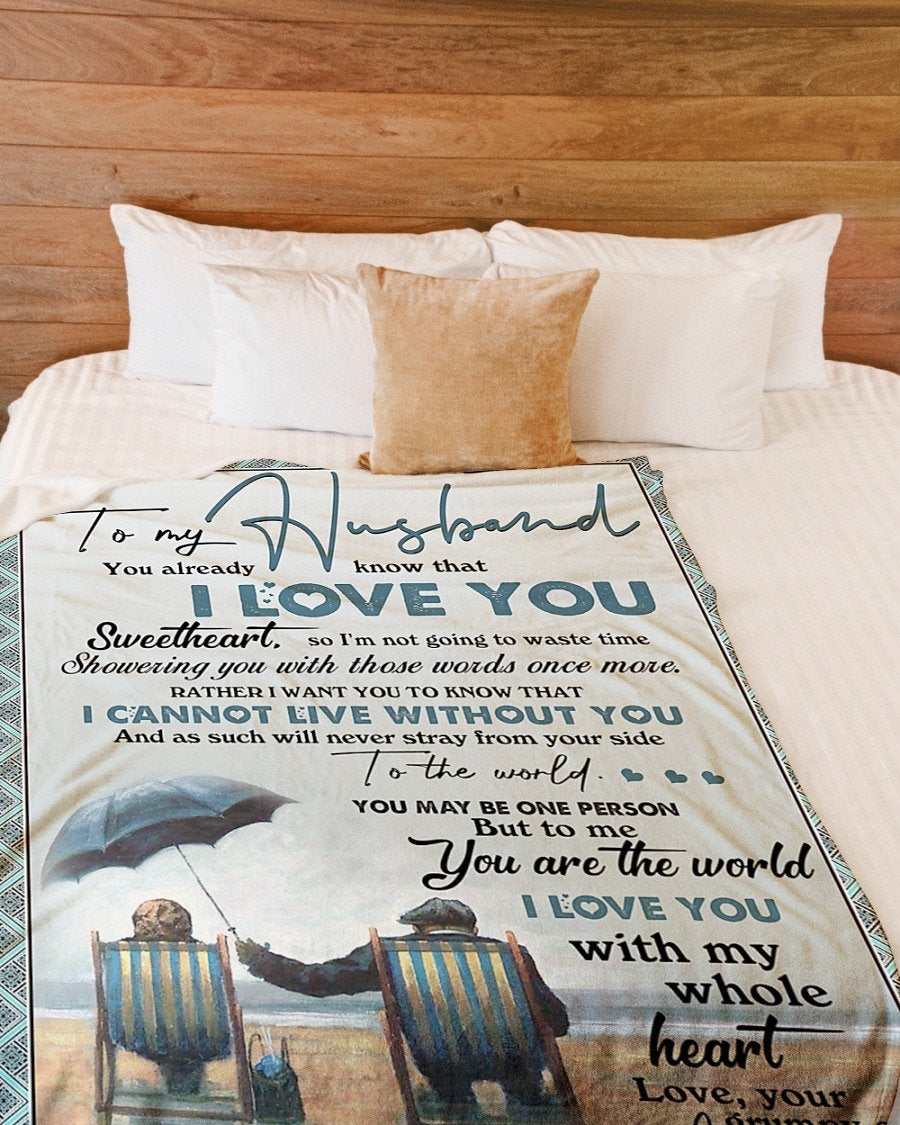 To my Husband
You already know that
I LOVE YOU
Sweetheart, so I'm not going to waste time
Showering you with those words once more.
RATHER I WANT YOU TO KNOW THAT
I CANNOT LIVE WITHOUT YOU
And as such will never stray from your side
To the world.
YOU MAY BE ONE PERSON
But to me
You are the world
I LOVE YOU
with my
whole
heart
Love, your